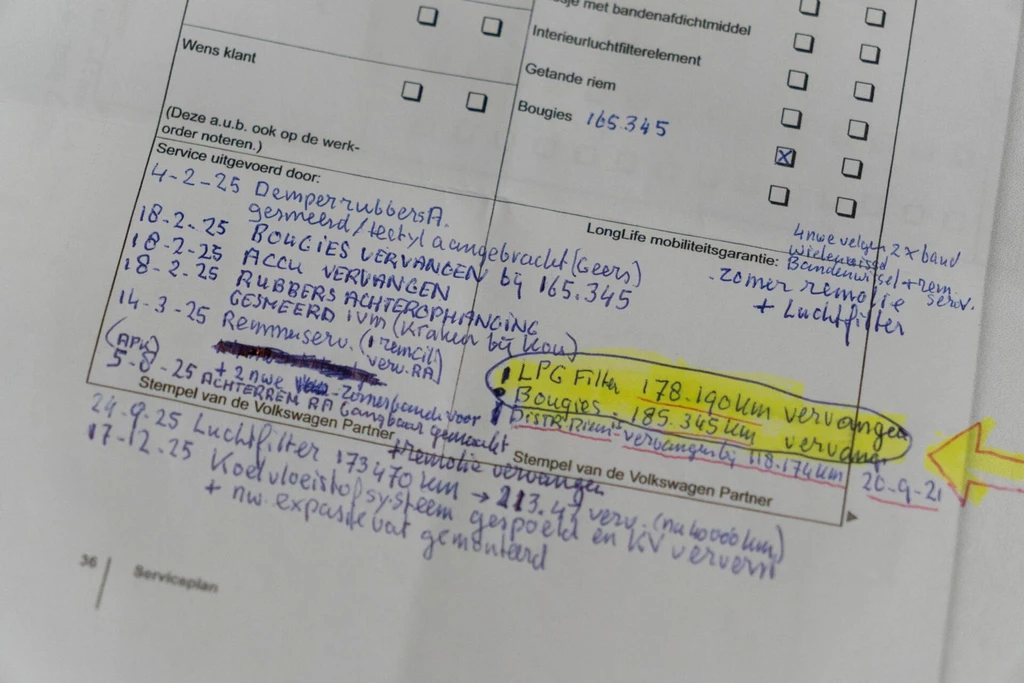 je met bandenafdichtmiddel
Interieurluchtfilterelement
Getande riem
Bougies 165.345
Wens klant
(Deze a.u.b. ook op de werk-
order noteren.)
Service uitgevoerd door:
4-2-25 DemperrubbersA.
gesmeerd/tectyl aangebracht (Geers)
18-2-25 BOUGIES VERVANGEN bij 165.345
18-2-25 ACCU VERVANGEN
18-2-25 RUBBERS ACHTEROPHANGING
GESMEERD ivm (Kraken bij Kou)
14-3-25 Remmenserv. (1 remcil)
verv. RA)
(APK)
5-8-25 + 2 nwe Zomerbanden voor
ACHTERREM RA Gangbaar gemaakt
LongLife mobiliteitsgarantie:
4 nwe velgen 2 x band
Bandenwissel + rem
serv.
- zomer remolie
+ Luchtfilter
LPG Filter 178.190 km vervangen
Bougies - 185.345 km vervang.
Distr. Riem - vervangen bij 118.174 km 20-9-21
Stempel van de Volkswagen Partner
Stempel van de Volkswagen Partner
+ Remolie vervangen
24-9-25 Luchtfilter 173470 km → 213.47 verv. (na 40000 km)
17-12-25 Koelvloeistofsysteem gespoeld en KV ververst
+ nw. expasievat gemonteerd
36 Serviceplan